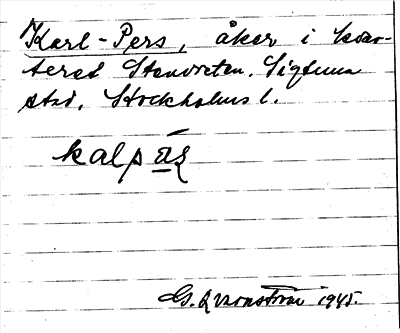 Karl-Pers, åker i kvar-
teret Stenvreten. Sigtuna
stad, Stockholms l.
kalpäş
G. Qvarnström 1945.